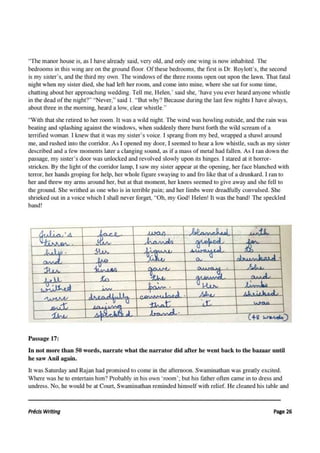 "The manor house is, as I have already said, very old, and only one wing is now inhabited. The
bedrooms in this wing are on the ground floor. Of these bedrooms, the first is Dr. Roylott's, the second
is my sister's, and the third my own. The windows of the three rooms open out upon the lawn. That fatal
night when my sister died, she had left her room, and come into mine, where she sat for some time,
chatting about her approaching wedding. Tell me, Helen,' said she, 'have you ever heard anyone whistle
in the dead of the night?" "Never," said I. "But why? Because during the last few nights I have always,
about three in the morning, heard a low, clear whistle."
"With that she retired to her room. It was a wild night. The wind was howling outside, and the rain was
beating and splashing against the windows, when suddenly there burst forth the wild scream of a
terrified woman. I knew that it was my sister's voice. I sprang from my bed, wrapped a shawl around
me, and rushed into the corridor. As I opened my door, I seemed to hear a low whistle, such as my sister
described and a few moments later a clanging sound, as if a mass of metal had fallen. As I ran down the
passage, my sister's door was unlocked and revolved slowly upon its hinges. I stared at it horror-
stricken. By the light of the corridor lamp, I saw my sister appear at the opening, her face blanched with
terror, her hands groping for help, her whole figure swaying to and fro like that of a drunkard. I ran to
her and threw my arms around her, but at that moment, her knees seemed to give away and she fell to
the ground. She writhed as one who is in terrible pain; and her limbs were dreadfully convulsed. She
shrieked out in a voice which I shall never forget, "Oh, my God! Helen! It was the band! The speckled
band!
Julia's face was blanched with
terror. Her hands groped for
help. Her figure swayed to
and fro like a drunkard.
Her knees gave away. She
fell to the ground and
writhed in pain. Her limbs
were dreadfully convulsed. She shrieked
out saying that it was
the speckled band.
(48 words)
Passage 17:
In not more than 50 words, narrate what the narrator did after he went back to the bazaar until
he saw Anil again.
It was Saturday and Rajan had promised to come in the afternoon. Swaminathan was greatly excited.
Where was he to entertain him? Probably in his own 'room'; but his father often came in to dress and
undress. No, he would be at Court, Swaminathan reminded himself with relief. He cleaned his table and
Précis Writing Page 26